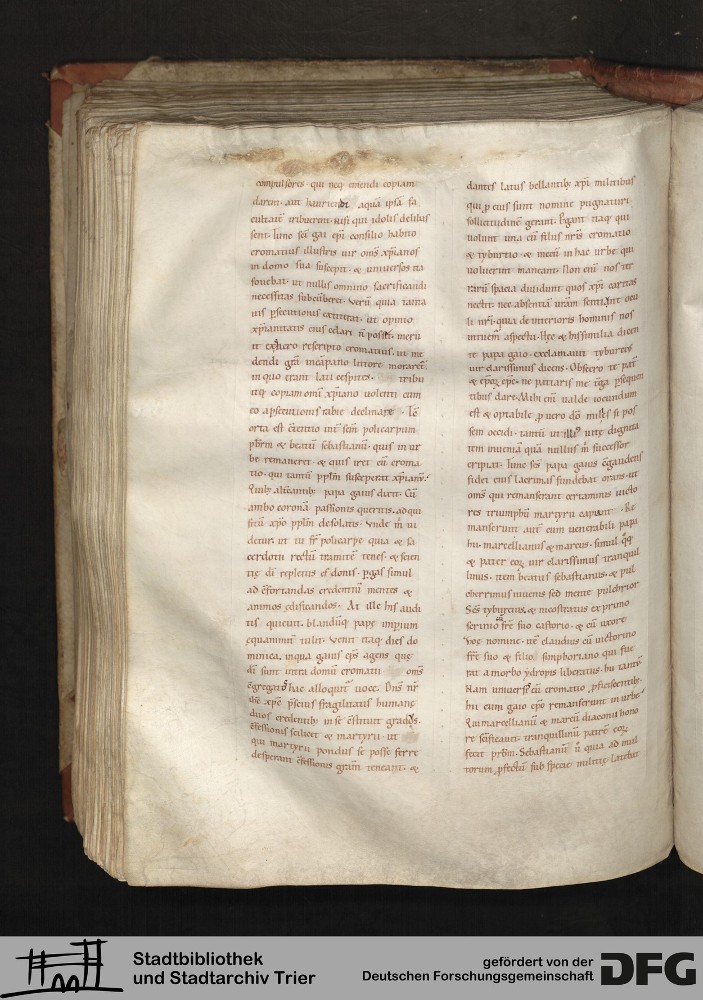 compulsores · qui neq emendi copiam
darent · aut hauriendi aquā ipsā fa
cultatē tribuerent · nisi qui idolis delibas
sent · Tunc sci gai epi consilio habito
cromatius illustris uir oms xpianos
in domo sua suscepit · & uniuersos ita
fouebat · ut nullis omnino sacrificandi
necessitas subeūberet · Verū quia tanta
uis psecutionis extitat · ut opinio
xpianitatis eius celari n̄ posset · meru
it rescripto cromatius · ut me
dendi grā in cāpano littore moraret
in quo erant lati cespites · tribu
it copiam omī xpiano uolenti cum
eo a psecutionis rabie declinare · Tē
orta est tentio int sem policarpum
pbrm & beatū sebastianū · quis in ur
be remaneret · & quis iret cū croma
tio · qui tantū pplm susceperat xpianū ·
papa gaius dicit · Cū
ambo coronā passionis queritis · adqui
sitū xpo pplm desolatis · Vnde m ui
detur · ut tu fr policarpe quia & sa
cerdotii rectū tramitē tenes · & scien
tię di repletus es donis · pgas simul
ad cfortandas credentiū mentes &
animos edificandos · At ille his audi
tis quieuit · blandūq papę impium
equanimit tulit · Venit itaq dies do
minica · in qua gaius eps agens quę
di sunt intra domū cromatii oms
cgregatos hac alloquit uoce · Dns nr
ihc xpc pscius fragilitatis humanę
duos credentib in se cstituit gradus ·
cfessionis scilicet & martyrii · ut
qui martyrii pondus se posse ferre
desperant cfessionis gram teneant · &
dantes latus bellantib xpi militibus
qui p eius sunt nomine pugnaturi
sollicitudinē gerant · Pgant itaq qui
uolunt una cū filiis nris cromatio
& tyburtio · & mecū in hac urbe qui
uoluerint maneant · Non eni nos ter
rarū spacia diuidunt quos xpi caritas
nectit · nec absentiā uram sentiunt ocu
li nri · quia de interioris hominis nos
intuem aspectu · Hęc & his similia dicen
te papa gaio · exclamauit tyburcius
uir clarissimus dicens · Obsecro te pat
& epoꝝ epe · ne patiaris me terga psequen
tibus dare · Mihi eni ualde iocundum
est & optabile p uero do miles si pos
sem occidi · tantū ut illi uitę dignita
tem inueniā quā nullus m successor
eripiat · Tunc scs papa gaius cgaudens
fidei eius lacrimas fundebat orans · ut
oms qui remanserant certaminis uicto
res triumphū martyrii capiant · Re
manserunt aut cum uenerabili papa
hii · marcellianus & marcus · simul qq
& pater eoꝝ uir clarissimus tranquil
linus · item beatus sebastianus · & pul
cherrimus iuuenis sed mente pulchrior
Scs tyburcius · & nicostratus ex primo
scrinio cū frē suo castorio · & cū uxore
zoę nomine · itē claudius cū uictorino
frē suo & filio simphoriano qui fue
rat a morbo ydropis liberatus · hii tantū
Nam uniuersi cū cromatio pficiscentib ·
hii cum gaio epo remanserunt in urbe ·
Qui marcellianū & marcū diaconii hono
re scificauit · tranquillinū patrē eoꝝ
fecit prbm · Sebastianū u quia ad mul
torum pfectū sub specie militię latebat
Stadtbibliothek
und Stadtarchiv Trier
gefördert von der
Deutschen Forschungsgemeinschaft
DFG